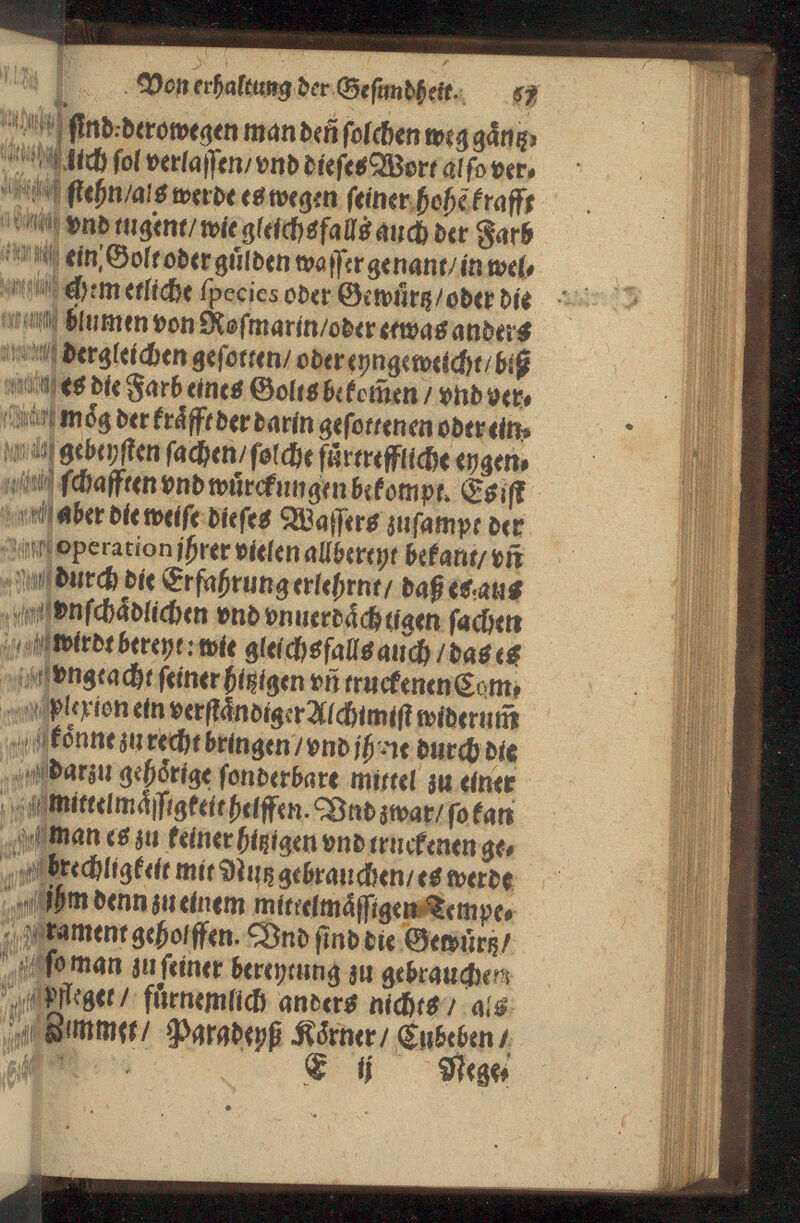 Von erhaltung der Geſundheit. 67
ſind: derowegen man deñ ſolchen weg gaͤntz⸗
lich ſol verlaſſen/ vnd dieſes Wort alſo ver⸗
ſtehn/als werde es wegen ſeiner hohẽ krafft
vnd tugent/ wie gleichsfalls auch der Farb
ein Golt oder guͤlden waſſer genant/ in wel⸗
chem etliche ſpecies oder Gewuͤrtz/ oder die
blumen von Roſmarin/oder etwas anders
dergleichen geſotten/ oder eyngeweicht/ biß
es die Farb eines Golts bekom̃en / vnd ver⸗
moͤg der kraͤfft der darin geſottenen oder ein⸗
gebeyſten ſachen/ ſolche fuͤrtreffliche eygen⸗
ſchafften vnd wuͤrckungen bekompt. Es iſt
aber die weiſe dieſes Waſſers zuſampt der
operation jhrer vielen allbereyt bekant/ vñ
durch die Erfahrung erlehrnt/ daß es aus
vnſchaͤdlichen vnd vnuerdaͤchtigen ſachen
wirdt bereyt: wie gleichsfalls auch / das es
vngeacht ſeiner hitzigen vñ truckenen Com⸗
plexion ein verſtaͤndiger Alchimiſt widerum̃
koͤnne zu recht bringen / vnd jhme durch die
darzu gehoͤrige ſonderbare mittel zu einer
mittelmaͤſſigkeit helffen. Vnd zwar/ ſo kan
man es zu keiner hitzigen vnd truckenen ge⸗
brechligkeit mit Nutz gebrauchen/ es werde
jhm denn zu einem mittelmaͤſſigen Tempe⸗
rament geholffen. Vnd ſind die Gewuͤrtz/
ſo man zu ſeiner bereytung zu gebrauchen
pfleget / fuͤrnemlich anders nichts / als
Zimmet/ Paradeyß Koͤrner / Cubeben /
E ij Nege⸗